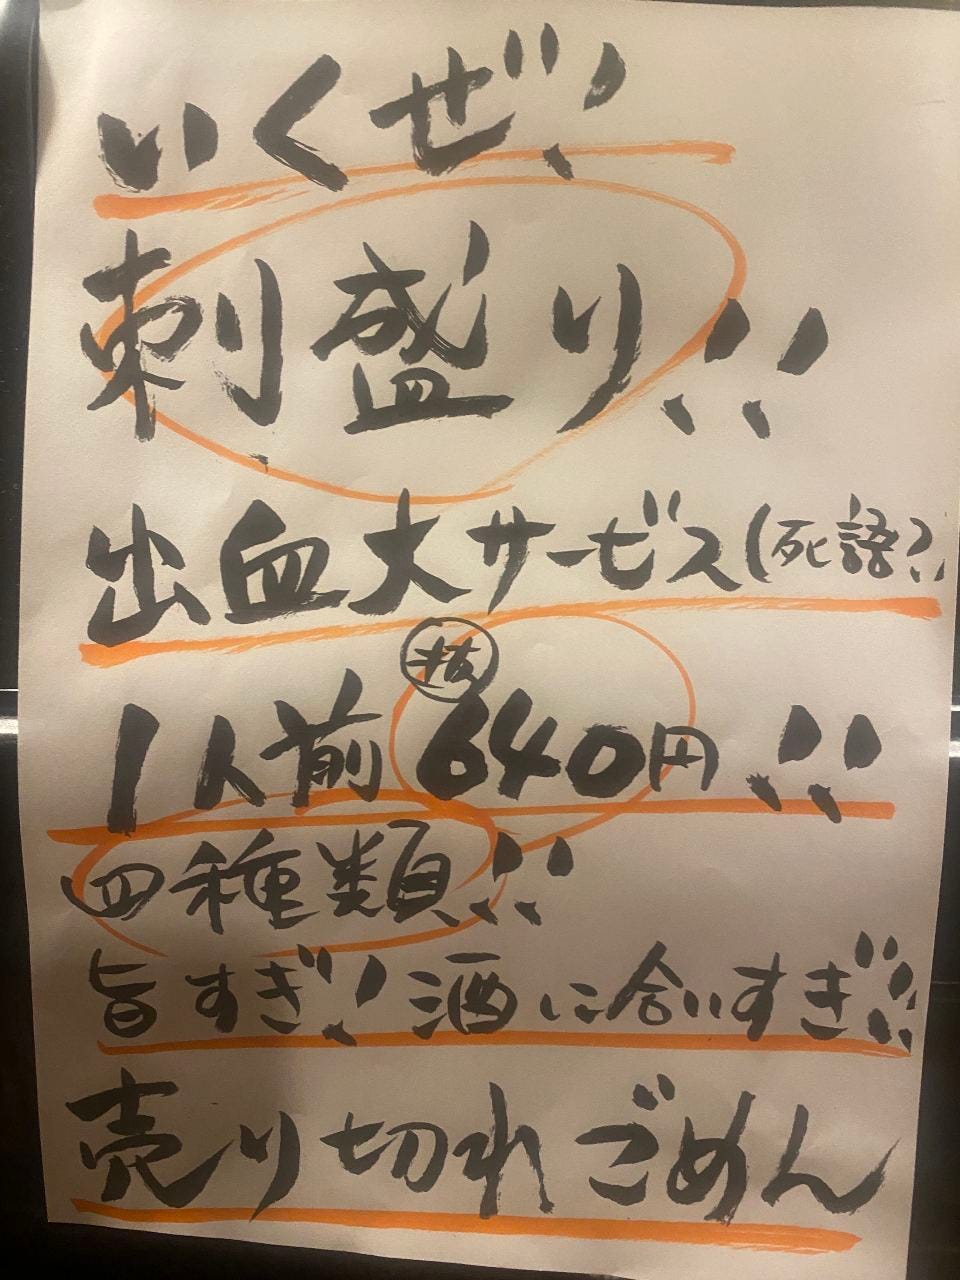 いくぜ!
刺盛り!!
出血大サービス(死語?)
1人前 ㊡640円!!
四種類!!
旨すぎ!酒に合いすぎ!!
売り切れごめん